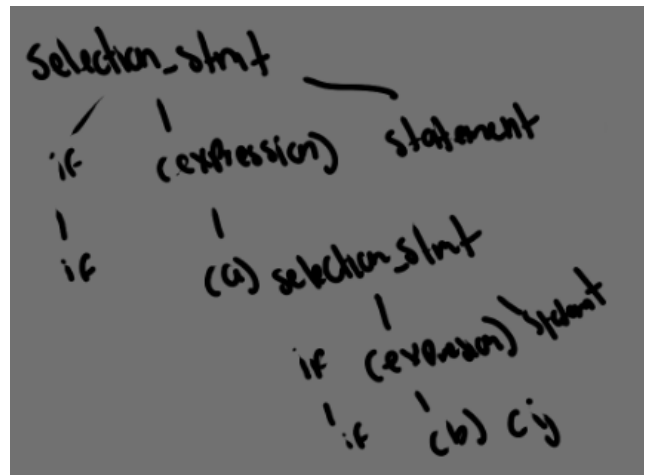 selection_stmt
if (expression) statement
if (a) selection_stmt
if (expression) statemt
if (b) c;